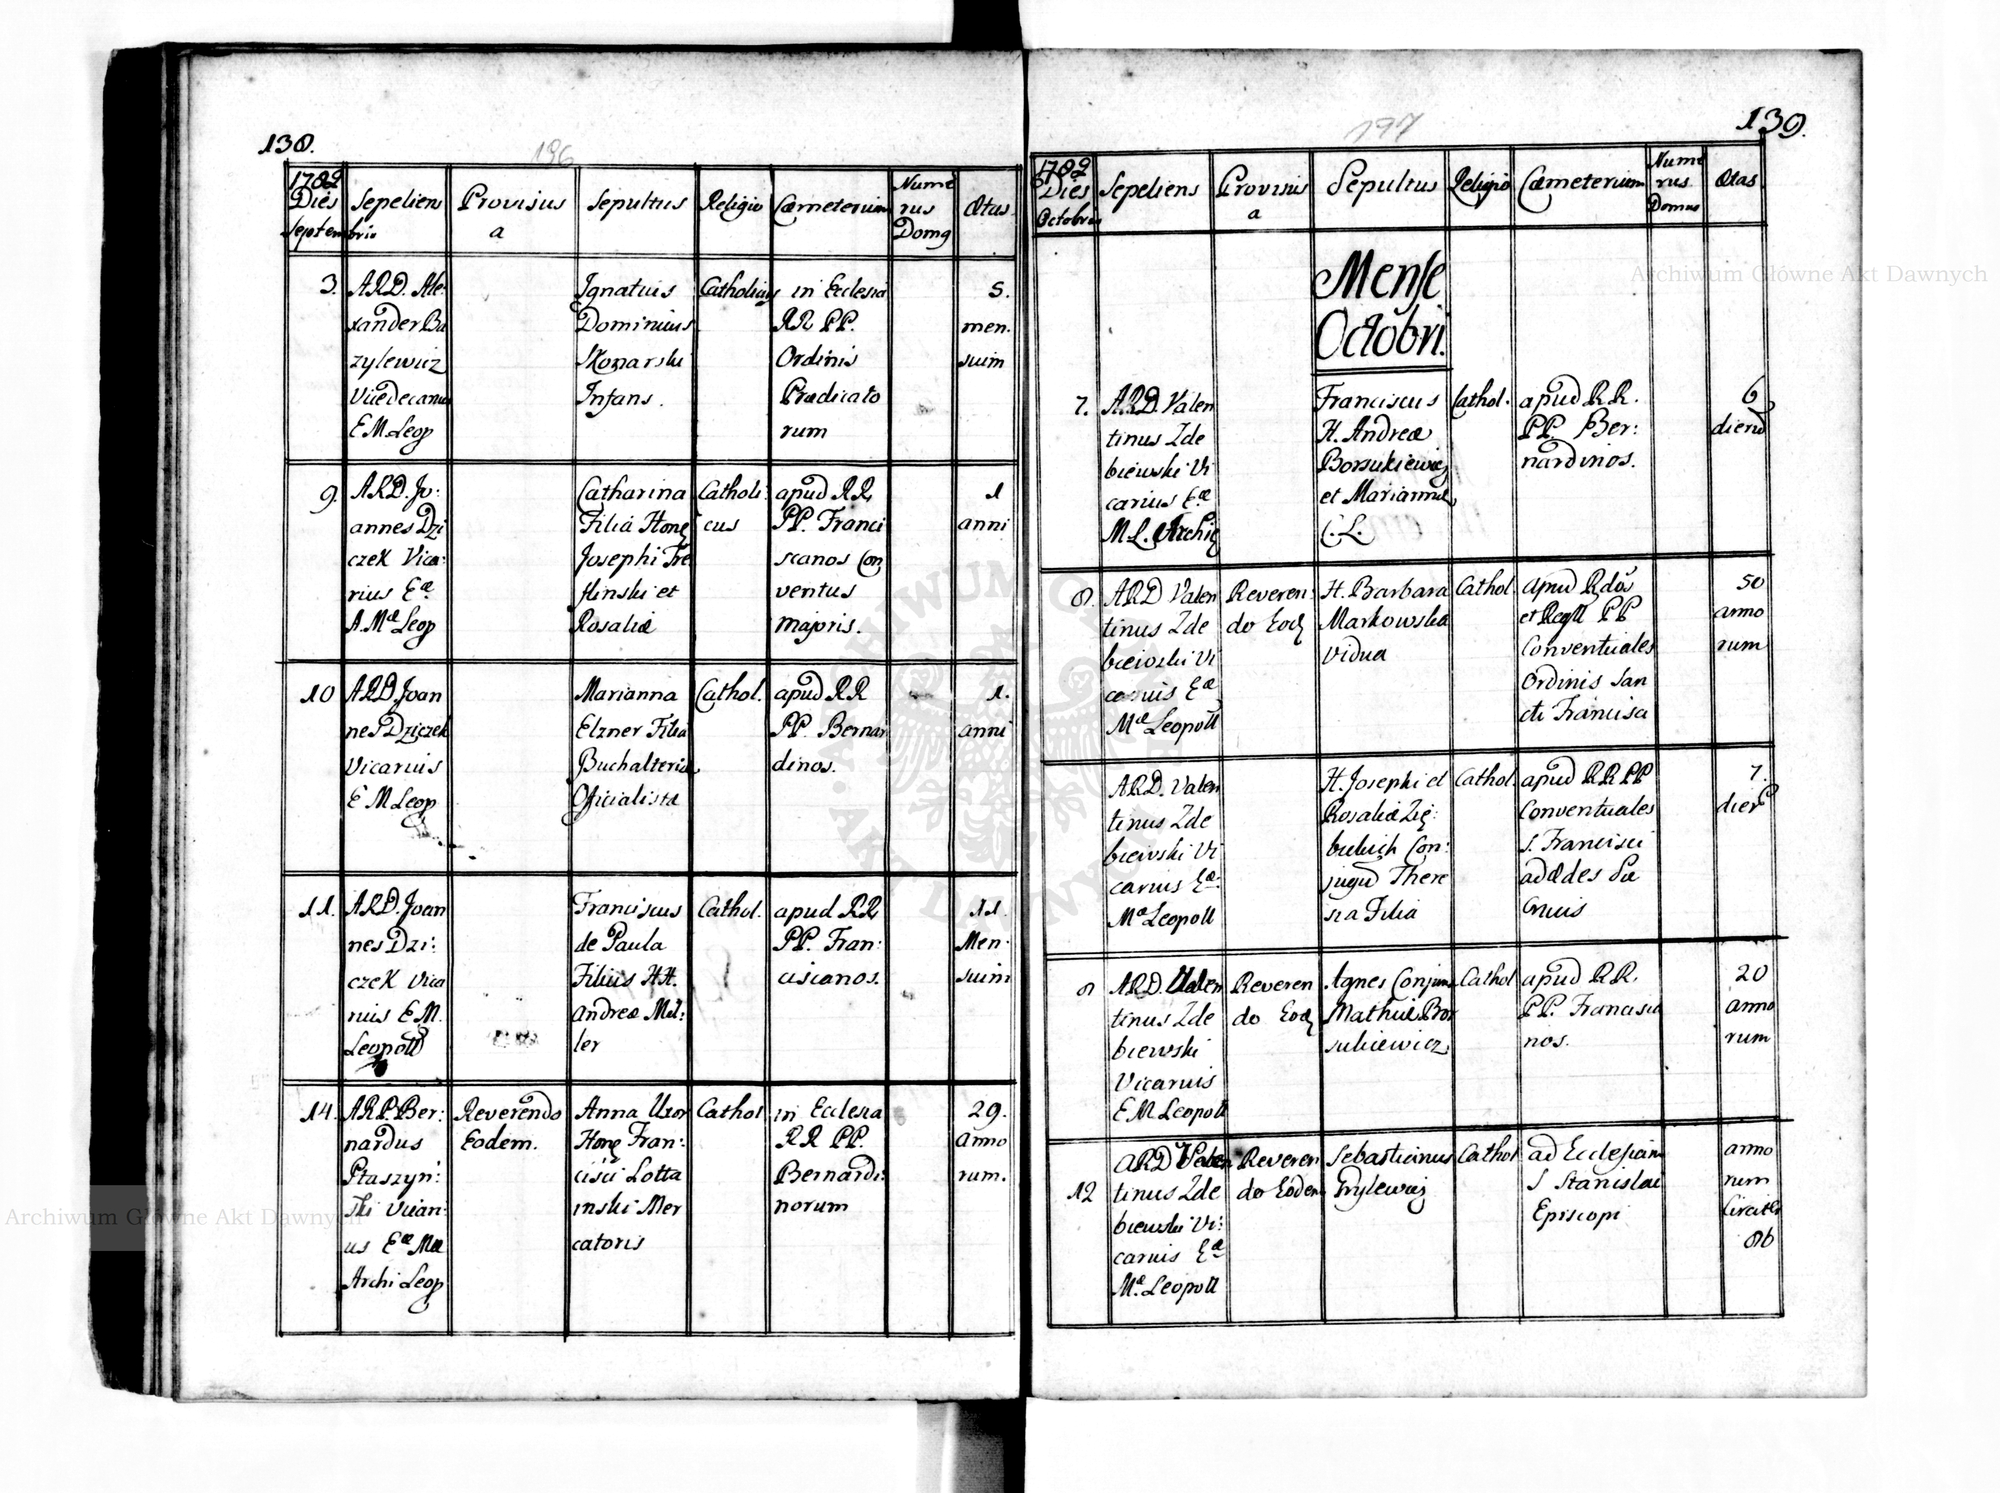 138.
196
1782
Dies
Septembris
Sepeliens
Provisus
a
Sepultus
Religio
Cæmeterium
Nume
rus
Domq
Ætas
3.
ARD. Ale:
xander Ba
zylewicz
Vicedecanus
E M Leop
Ignatius
Dominicus
Konarski
Infans.
Catholicus
in Ecclesia
RR PP.
Ordinis
Prædicato
rum
5.
men.
suim
9
ARD. Jo:
annes Dzi
czek Vica:
rius Eæ
A. Mæ Leop
Catharina
Filia Honq
Josephi Tre
flinski et
Rosaliæ
Catholi:
cus
apud RR
PP. Franci
scanos Con
ventus
majoris.
1
anni
10
ARD. Joan
nes Dziczek
Vicarius
E M Leop
Marianna
Elzner Filia
Buchalteria
Oficialista
Cathol.
apud RR
PP. Bernar
dinos.
1.
anni
11.
ARD. Joan
nes Dzi:
czek Vica
rius E M.
Leopoll
Franciscus
de Paula
Filius HH.
Andreæ Mil:
ler
Cathol.
apud RR
PP. Fran:
ciscanos.
11.
Men:
suim
14.
ARP. Ber:
nardus
Ptaszyń:
ski Vicari:
us Eæ Mæ
Archi Leop
Reverendo
Eodem.
Anna Uxor
Honq Fran:
cisci Lotta
inski Mer
catoris
Cathol
in Ecclesia
RR PP.
Bernardi:
norum
29.
anno
rum.
139.
197
1782
Dies
Octobris
Sepeliens
Provisus
a
Sepultus
Religio
Cæmeterium
Nume
rus
Domus
Ætas
Mense
Octobri.
7.
ARD. Valen
tinus Zde
biewski Vi
carius Eæ
M L. Archiq
Franciscus
H. Andreæ
Borsukiewicz
et Mariannæ
C. L.
Cathol.
apud RR.
PP. Ber:
nardinos.
6
dierū
8.
ARD Valen
tinus Zde
biewski Vi
carius Eæ
Mæ Leopoll
Reveren
do Eodq
H. Barbara
Markowska
Vidua
Cathol.
apud Rdos
et PP
Conventuales
Ordinis San
cti Francisci
50
anno
rum
ARD. Valen
tinus Zde
biewski Vi
carius Eæ
Mæ Leopoll
H. Josephi et
Rosaliæ Zię:
bulich Con:
jugū There
sia Filia
Cathol.
apud RR PP
Conventuales
S. Francisci
ad ædes Stæ
Crucis
7.
dierū
8
ARD. Valen
tinus Zde
biewski
Vicarius
E M Leopoll
Reveren
do Eodq
Agnes Conjunx
Mathiæ Bor
sukiewicz
Cathol
apud RR.
PP. Francisca
nos.
20
anno
rum
12
ARD Valen
tinus Zde
biewski Vi:
carius Eæ
Mæ Leopoll
Reveren
do Eodem
Sebastianus
Grylewicz
Cathol
ad Ecclesiam
S Stanislai
Episcopi
anno
rum
circiter
86
Archiwum Główne Akt Dawnych
Archiwum Główne Akt Dawnych
ARCHIWUM GŁÓWNE AKT DAWNYCH